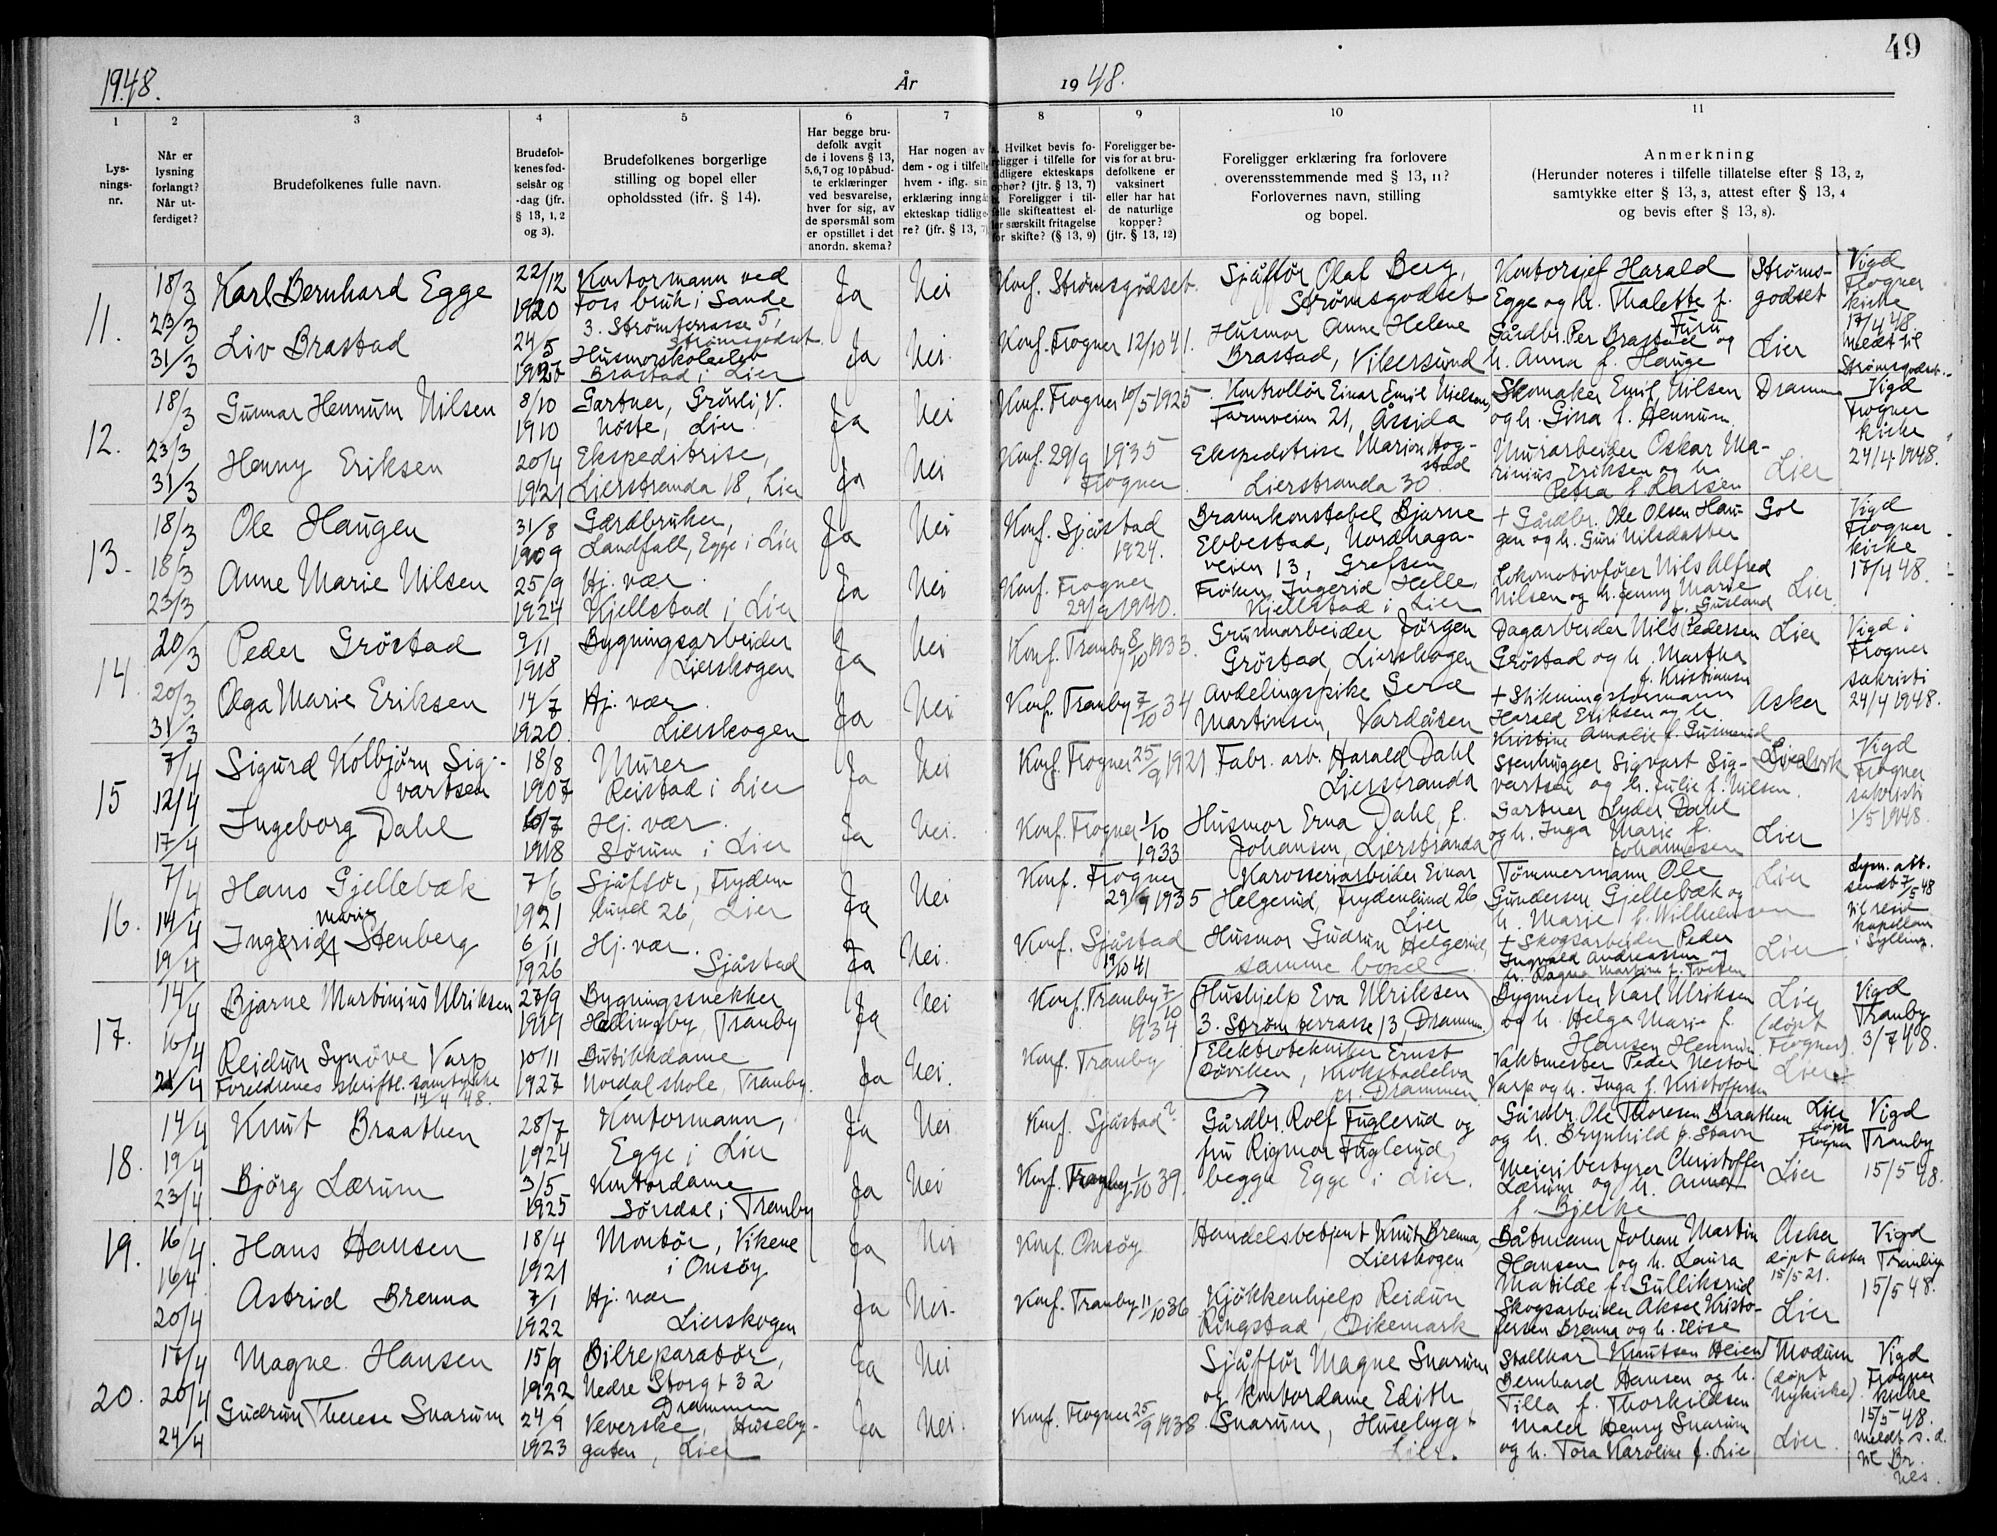 49
1948.
År
19 48.
1
2
3
4
5
6
7
8
9
10
11
Lys-
nings-
nr.
Når er
lysning
forlangt?
Når ut-
ferdiget?
Brudefolkenes fulle navn.
Brudefol-
kenes fød-
selsår og
-dag (jfr.
§ 13, 1, 2
og 3).
Brudefolkenes borgerlige
stilling og bopel eller
opholdssted (ifr. § 14).
Har begge bru-
defolk avgit
de i lovens § 13,
5,6,7 og 10 påbud-
te erklæringer
ved besvarelse,
hver for sig, av
de spørsmål som
er opstillet i det
anordn. skema?
Har nogen av
dem - og i tilfelle
hvem - iflg. sin
erklæring inngå
ekteskap tidlige-
re? (jfr. § 13, 7)
Hvilket bevis fo-
religger i tilfelle for
tidligere ekteskaps
ophør? (jfr. § 13, 7)
Foreligger i til-
felle skifteattest el-
ler særskilt fritagelse
for skifte? (§ 13, 9)
Foreligger be-
vis for at bru-
defolkene er
vaksinert
eller har hat
de naturlige
kopper?
(jfr. § 13, 12)
Foreligger erklæring fra forlovere
overensstemmende med § 13, 11?
Forlovernes navn, stilling
og bopel.
Anmerkning
(Herunder noteres i tilfelle tillatelse efter § 13, 2,
samtykke efter § 13, 3, attest efter § 13, 4
og bevis efter § 13, 8).
11.
18/3
23/3
31/3
Karl Bernhard Egge
22/12
1920
Kontormann ved
Fos bruk i Sande
3. Strømterrasse 5,
Strømsgodset.
Ja
Nei
Konf. Strømsgodset.
Sjåfør Olaf Berg,
Strømsgodset
Kontorsjef Harald
Egge og h. Thalette f.
Furu
Strøms-
godset
Vigd
Frogner
kirke
17/4 48.
Meldt til
Strømsgodset.
Liv Brastad
24/5
Husmorskoleelev
Brastad i Lier
Ja
Nei
Konf. Frogner 12/10 41.
Husmor Anne Helene
Brastad, Vikersund
Gårdbr. Per Brastad og
h. Anna f. Hauge
Lier
12.
18/3
23/3
31/3
Gunnar Hennum Nilsen
8/10
1910
Gartner, Grønli, V.
Nøste, Lier
Ja
Nei
Konf. Frogner 10/5 1925
Kontrollør Einar Emil Nielsen,
Tornveien 21, Åssida
Skomaker Emil Nilsen
og h. Gina f. Hennum
Dramm
Vigd
Frogner
kirke
24/4 1948.
Henny Eriksen
20/4
1921
Ekspeditrise,
Lierstranda 18, Lier
Ja
Nei
Konf. 29/9 1935
Frogner
Ekspeditrise Marion Hog-
stad
Lierstranda 30
Murarbeider Oskar Ma-
rinius Eriksen og h.
Petra f. Larsen
Lier
13.
18/3
18/3
23/3
Ole Haugen
31/8
1909
Gardbruker,
Landfall, Egge i Lier
Ja
Nei
Konf. Sjåstad
1924.
Brannkonstabel Bjarne
Ebbestad, Nordhaga-
veien 13, Grefsen
+ Gårdbr. Ole Olsen Hau-
gen og h. Guri Nilsdatter
Gol
Vigd
Frogner
kirke
17/4 48.
Anne Marie Nilsen
25/9
1924
Hj. vær.
Kjellstad i Lier
Ja
Nei
Konf. Frogner
29/9 1940.
Frøken Ingerid Helle,
Kjellstad i Lier
Lokomotivfører Nils Alfred
Nilsen og h. Jenny Marie
f. Gusland
Lier.
14.
20/3
20/3
31/3
Peder Grøstad
9/11
1918
Bygningsarbeider
Lierskogen
Ja
Nei
Konf. Tranby 8/10 1933.
Grunnarbeider Jørgen
Grøstad, Lierskogen
Dagarbeider Nils Pedersen
Grøstad og h. Martha
f. Kristiansen
Lier
Vigd i
Frogner
sakristi
24/4 1948.
Olga Marie Eriksen
14/7
1920.
Hj. vær
Lierskogen
Ja
Nei
Konf. Tranby 7/10 34
Avdelingspike Gerd
Martinsen, Vardåsen
+ Stikningsformann
Harald Eriksen og h.
Kristine Amalie f. Gusmerud
Asker
15
7/4
12/4
17/4
Sigurd Kolbjørn Sig-
vartsen
18/8
1907
Murer
Reistad i Lier
Ja
Nei
Konf. Frogner 25/9 1921
Fabr. arb. Harald Dahl
Lierstranda
Stenhugger Sigvart Sig-
vartsen og h. Julie f. Nilsen.
Vigd
Frogner
sakristi
1/5 1948.
Ingeborg Dahl
1918
Hj. vær.
Sørum i Lier
Ja
Nei.
Konf. Frogner 1/10
1933
Husmor Erna Dahl, f.
Johansen, Lierstranda
Gartner Lyder Dahl
og h. Inga Marie f.
Johannesen
Lier
16.
7/4
14/4
19/4
Hans Gjellebæk
7/6
1921
Sjåfør, Fryden-
lund 26, Lier
Ja
Nei
Konf. Frogner
29/9 1935
Karosseriarbeider Einar
Helgerud, Frydenlund 26
Lier
Tømmermann Ole
Gundersen Gjellebæk og
h. Marie f. Wilhelmsen
Lier
Lysn. att.
sendt 7/5 48
til resid.
kapellan
i Sylling.
Marie
Ingerid Stenberg
6/11
1926
Hj. vær.
Sjåstad
Ja
Nei.
Konf. Sjåstad
19/10 41
Husmor Gudrun Helgerud,
samme bopel
+ Skogsarbeider Peder
Ingvald Andreassen og
h. Dagna Martine f. Tveten
Lier
17.
14/4
16/4
21/4
Bjarne Martinius Ulriksen
27/9
1919
Bygningssnekker
Hallingby, Tranby
Ja
Nei
Konf. Tranby 7/10
1934.
Hushjelp Eva Ulriksen
3. Strømterrasse 13 Dramm.
Bygmester Karl Ulriksen
og h. Helga Marie f.
Hansen Hennum
Lier
(døpt
Frogner)
Vigd
Tranby
3/7 48.
Reidun Synøve Varp
Foreldrenes skriftl. samtykke
14/4 48.
10/11
1927
Butikkdame
Nordal skole, Tranby.
Ja
Nei.
Konf. Tranby
Elektrotekniker Ernst
Døviken, Krokstadelva
pr. Drammen
Vaktmester Peder Nestor
Varp og h. Inga f. Kristoffersen
Lier
18.
14/4
19/4
23/4
Knut Braathen
28/7
1924
Kontormann,
Egge i Lier
Ja
Nei.
Konf. Sjåstad?
Gårdbr. Rolf Fuglerud og
fru Rigmor Fuglerud,
begge Egge i Lier.
Gårdbr. Ole Thoresen Braathen
og h. Brynhild f. Stavn
Lier
døpt
Frogner
Vigd
Tranby
15/5 48.
Bjørg Lærum
3/5
1925
Kontordame
Sørsdal i Tranby
Ja
Nei
Konf. Tranby 1/10 39.
Meieribestyrer Christoffer
Lærum og h. Anna
f. Bjerke
Lier
19.
16/4
16/4
20/4
Hans Hansen
18/4
1921
Montør, Vikene
i Onsøy
Ja
Nei
Konf. Onsøy
Handelsbetjent Knut Brenna,
Lierskogen
Båtmann Johan Martin
Hansen og h. Laura
Matilde f. Gulliksrud
Asker
døpt Asker
15/5 21.
Vigd
Tranby
15/5 48.
Astrid Brenna
7/1
1922
Hj. vær
Lierskogen
Ja
Nei.
Konf. Tranby 11/10 36
Kjøkkenhjelp Reidun
Ringstad, Dikemark
Skogsarbeider Aksel Kristo-
fersen Brenna og h. Elise
Knutsen Heien
Lier
20.
17/4
20/4
24/4
Magne Hansen
15/9
1922
Bilreparatør,
Nedre Storgt 32
Drammen
Ja
Nei
Sjåfør Magne Snarum
og kontordame Edith
Snarum, Husebygt
Lier.
Stallkar
Bernhard Hansen og h.
Tilla f. Thorkildsen
Modum
(døpt
Nykirke)
Vigd
Frogner
kirke
15/5 48.
Meldt s. d.
til Br.
nes.
Gudrun Therese Snarum
24/9
1923
Veverske, Huseby-
gaten, Lier
Ja
Nei.
Konf. Frogner 25/9 1938
Maler Henry Snarum
og h. Tora Karoline f. Lie
Lier.